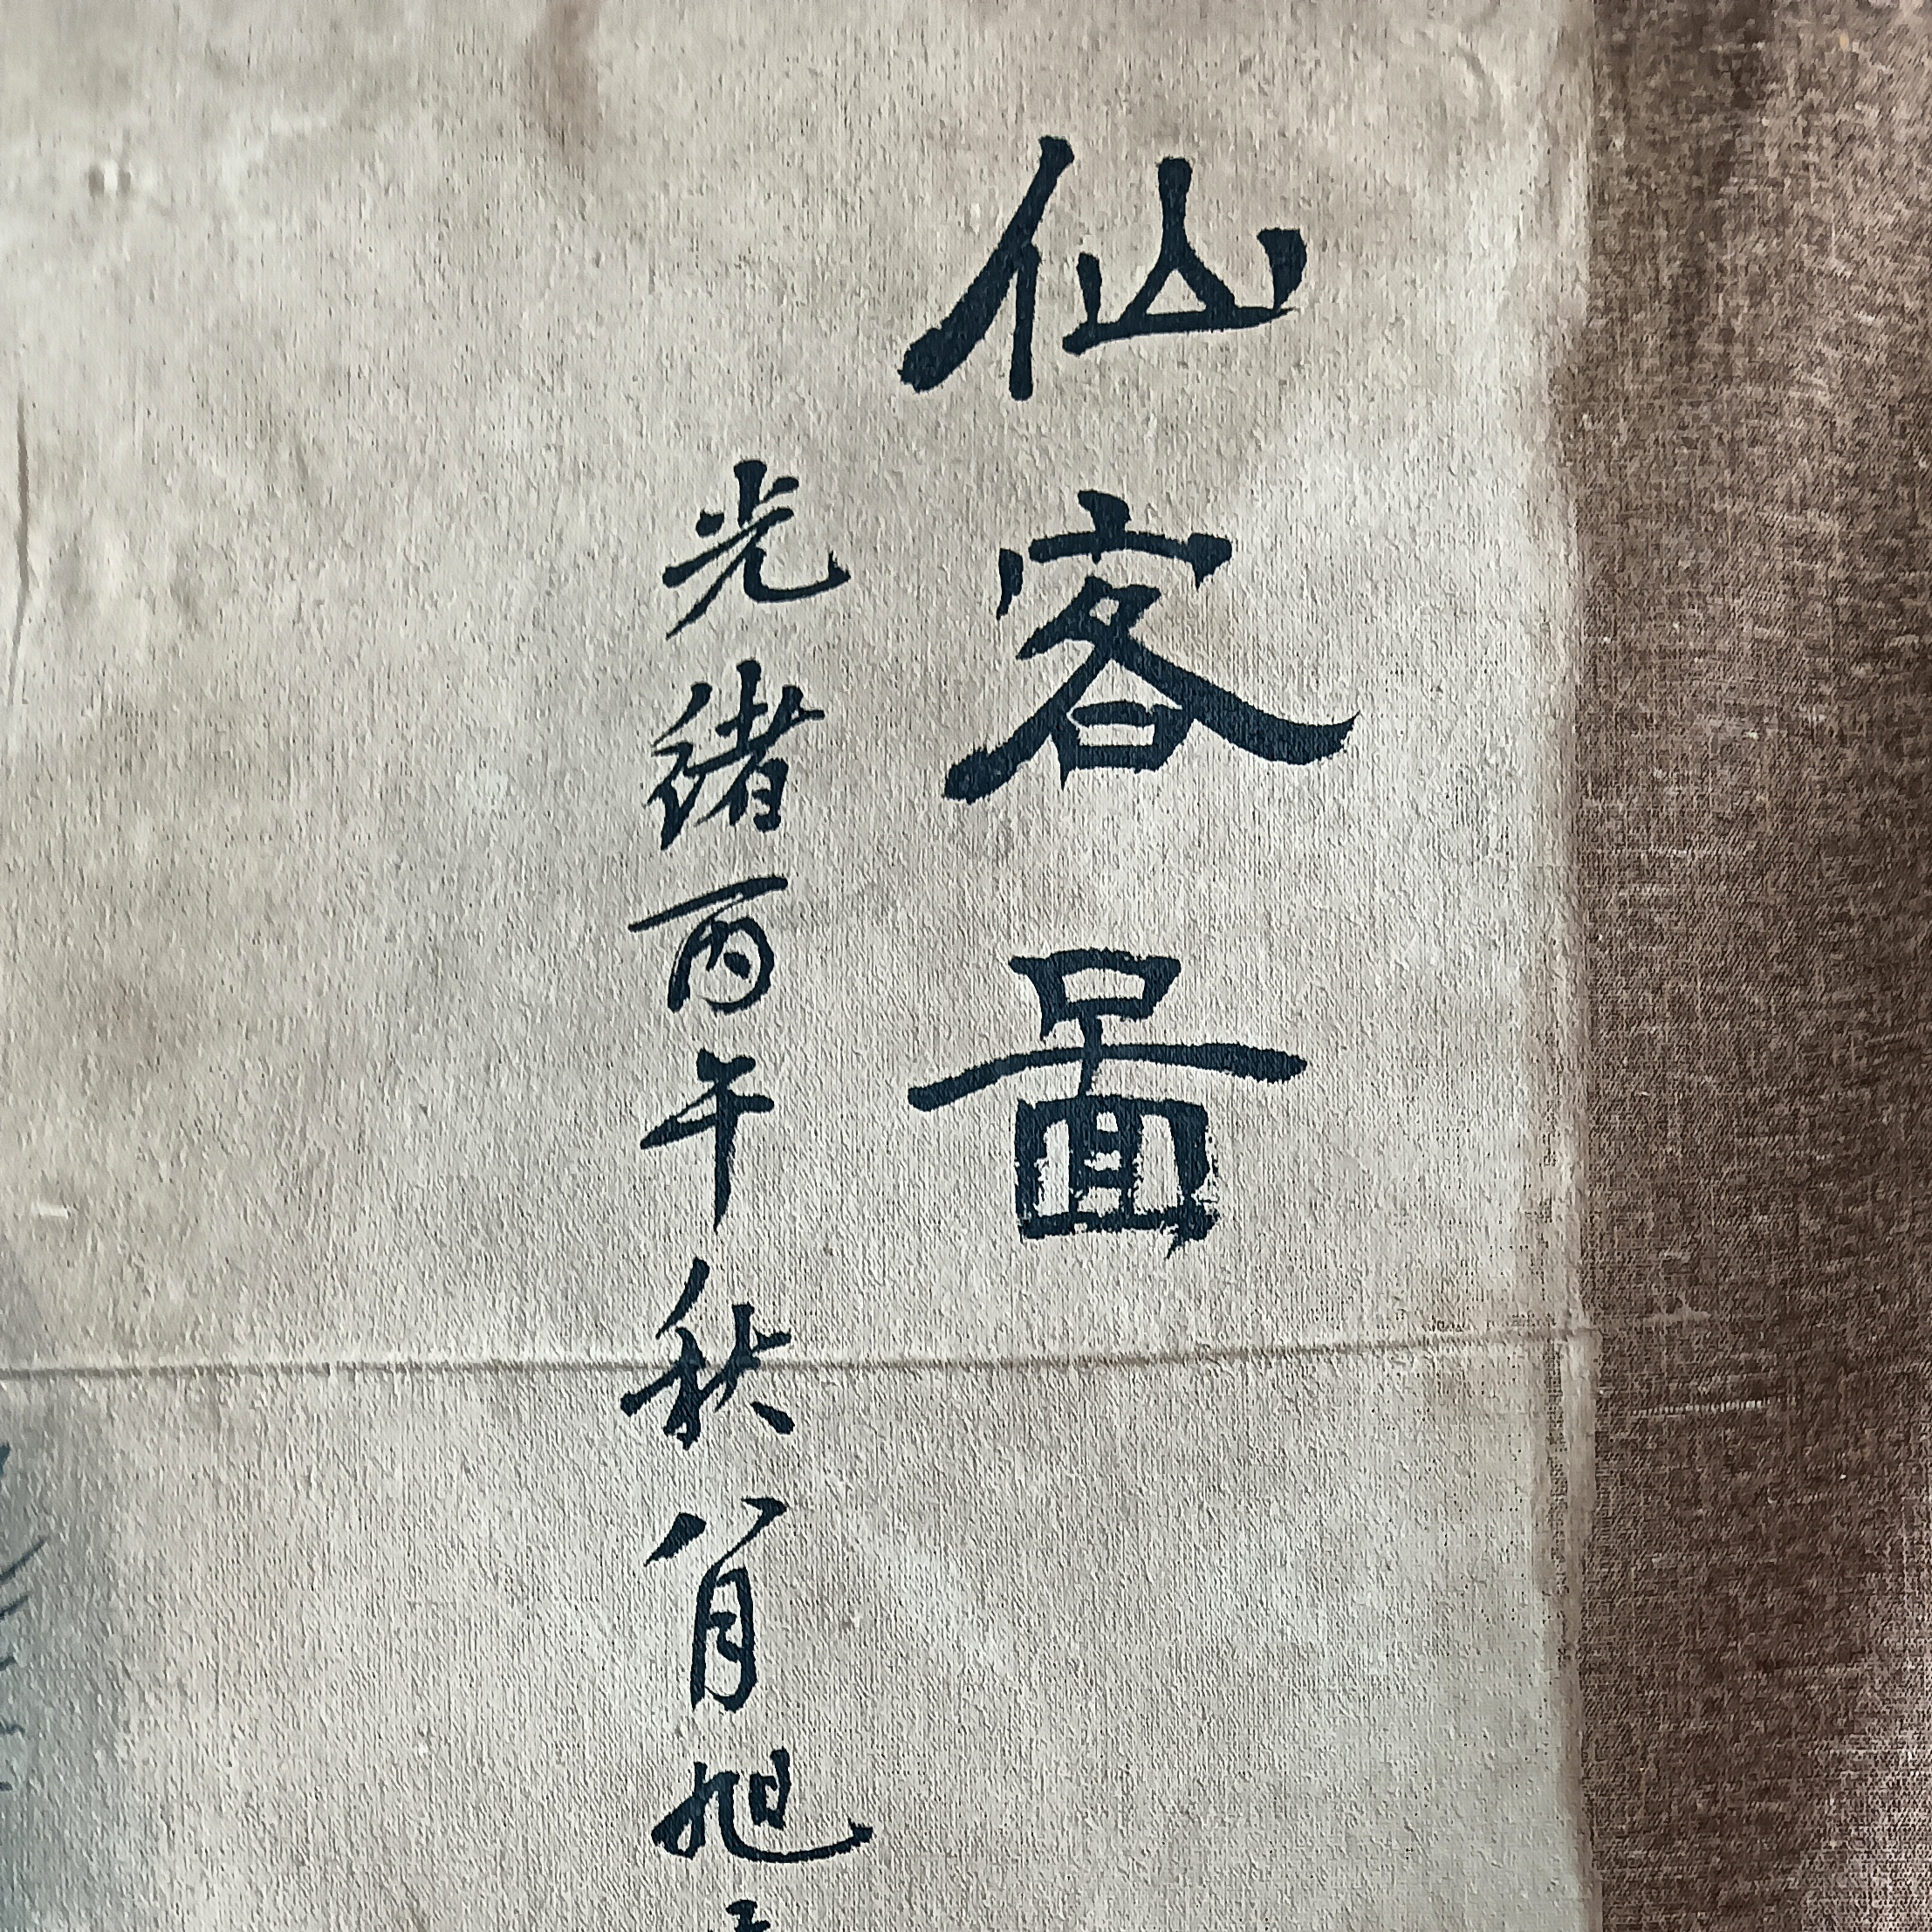 仙客圖
光緒丙午秋八月旭